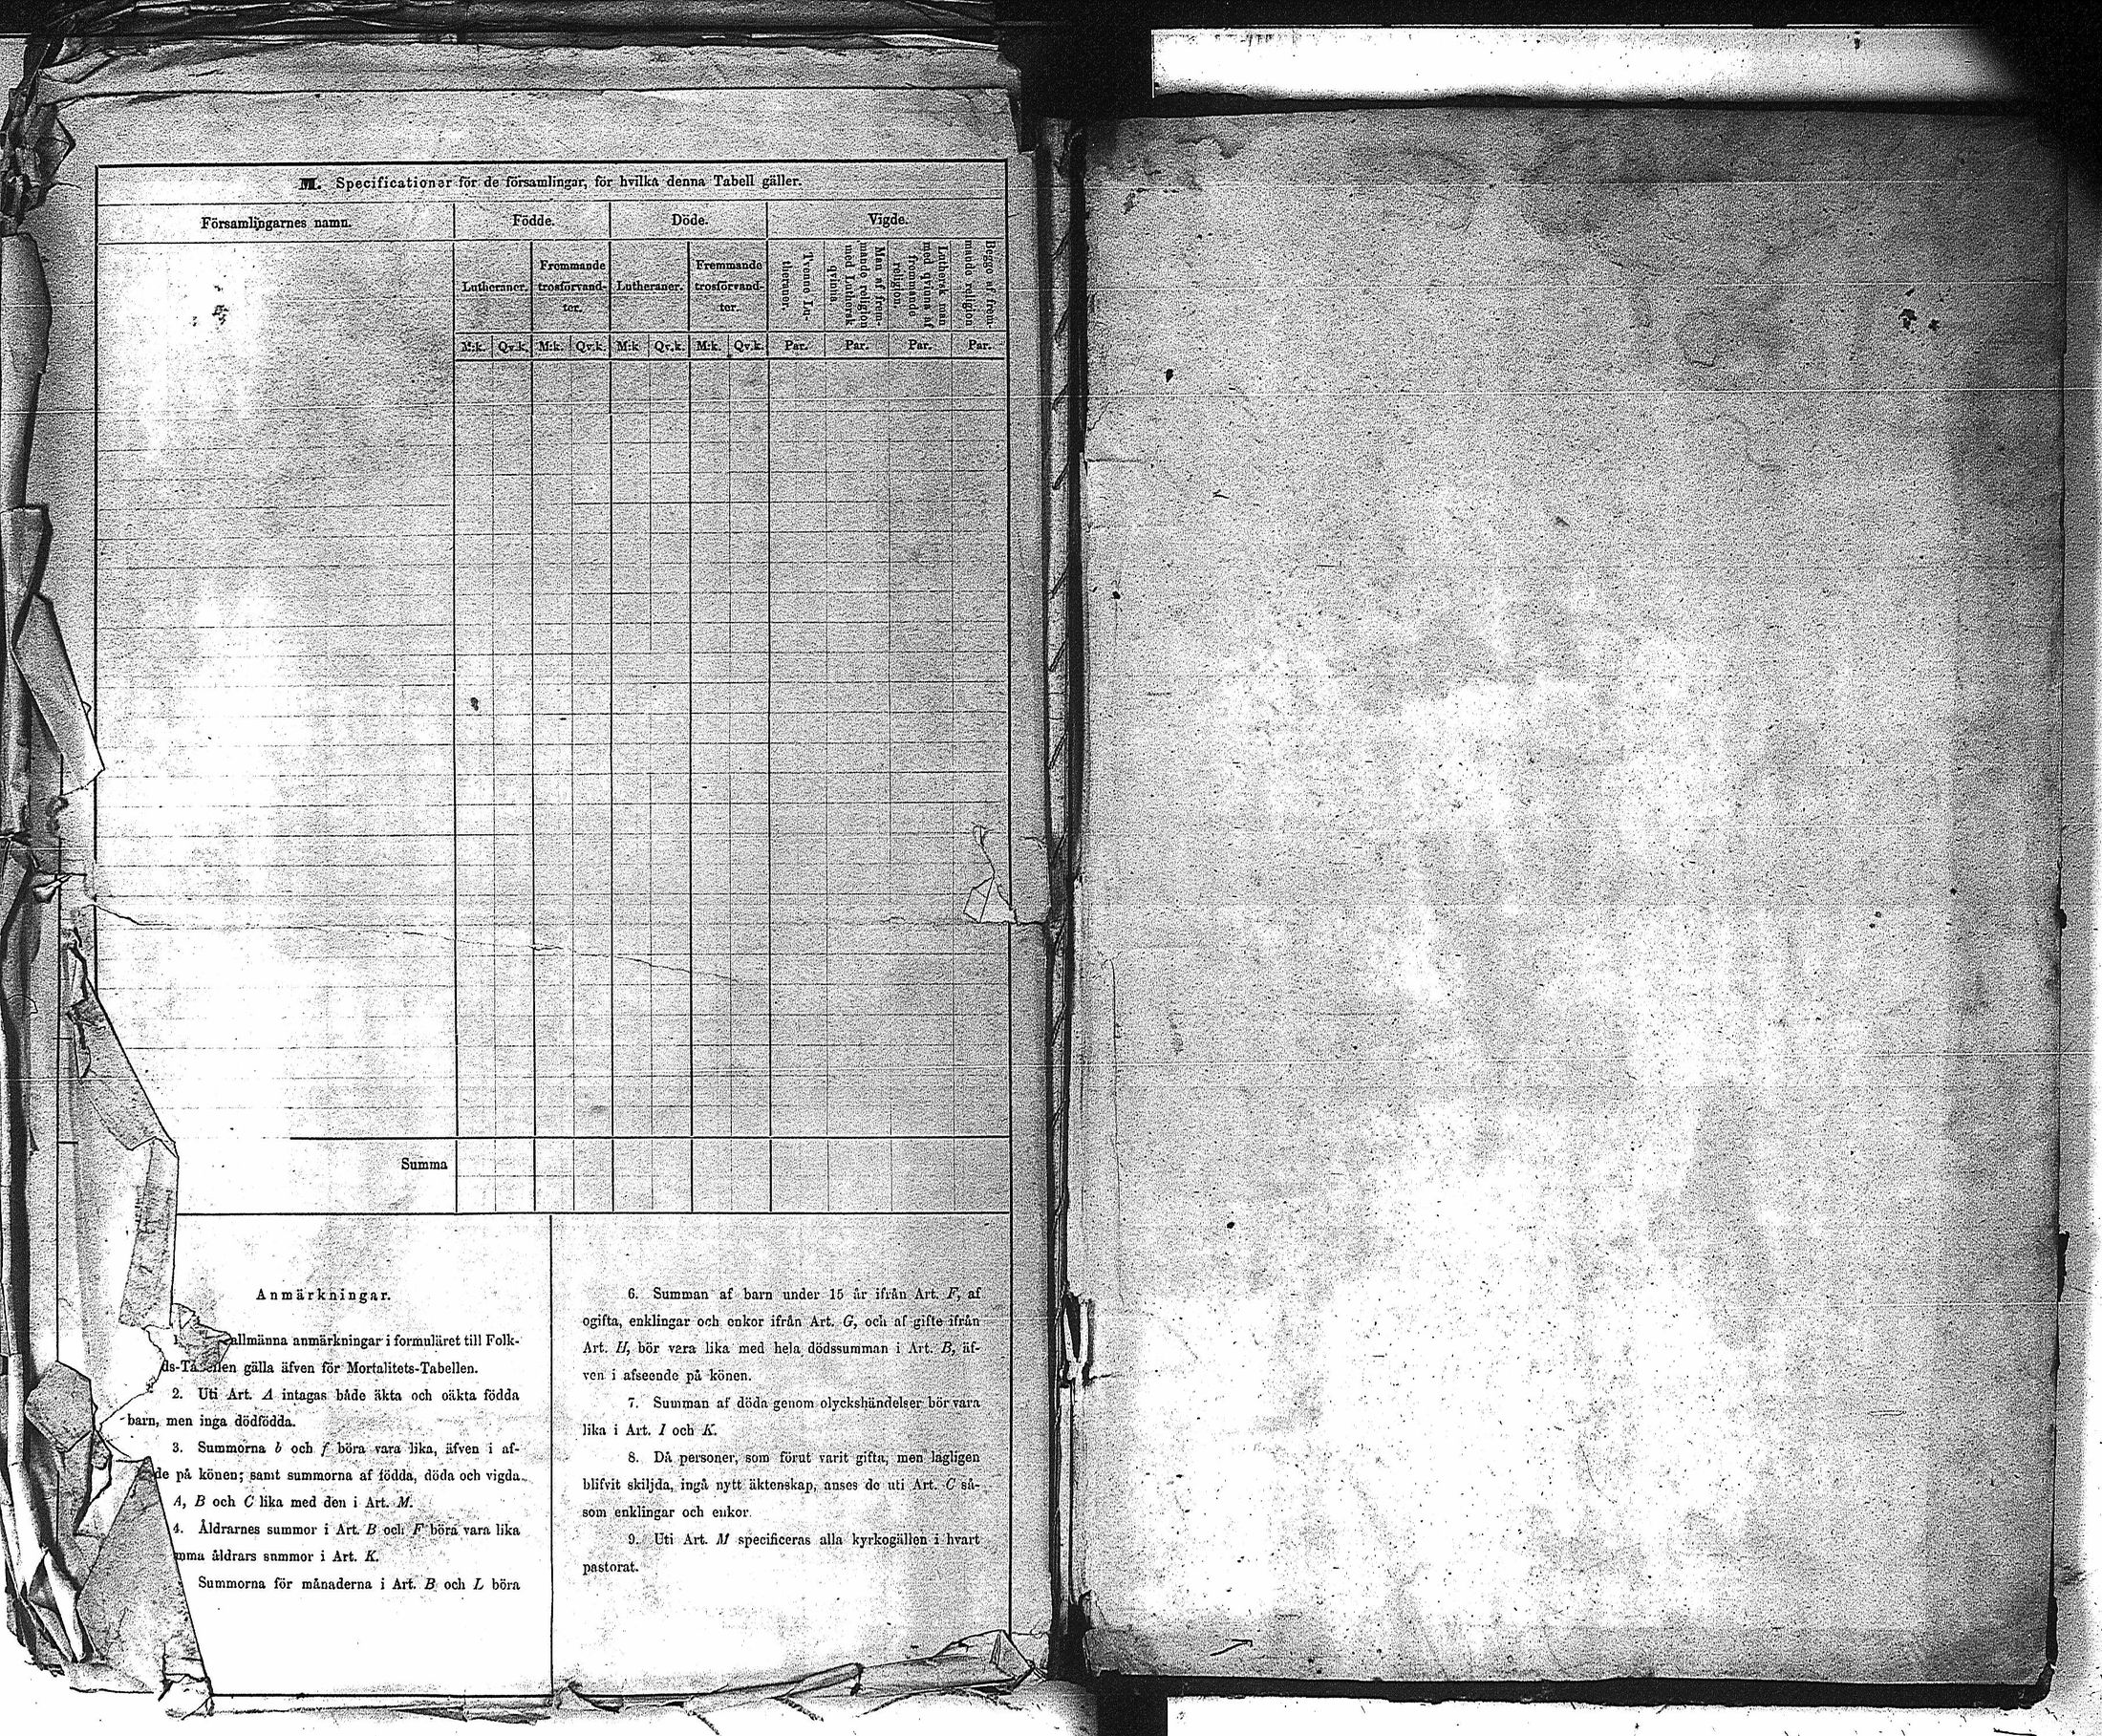 M. Specificationer för de församlingar, för hvilka denna Tabell gäller.
Församlingarnes namn.
Födde.
Döde.
Vigde.
Lutheraner.
Fremmande
trosförvand-
ter.
Lutheraner.
Fremmande
trosförvand-
ter.
Tvenne Lu-
theraner.
Man af frem-
mande religion
med Luthersk
qvinna.
Luthersk man
med qvinna af
fremmande
religion.
Begge af frem-
mande religion
M:k. Qv.k. M:k. Qv.k. M:k Qv.k. M:k. Qv.k. Par. Par. Par. Par.
Summa
Anmärkningar.
1. allmänna anmärkningar i formuläret till Folk-
ds-Tabellen gälla äfven för Mortalitets-Tabellen.
2. Uti Art. A intagas både äkta och oäkta födda
barn, men inga dödfödda.
3. Summorna b och f böra vara lika, äfven i af-
de på könen; samt summorna af födda, döda och vigda
A, B och C lika med den i Art. M.
4. Åldrarnes summor i Art. B och F böra vara lika
mma åldrars summor i Art. K.
Summorna för månaderna i Art. B och L böra
6. Summan af barn under 15 år ifrån Art. F, af
ogifta, enklingar och enkor ifrån Art. G, och af gifte ifrån
Art. H, bör vara lika med hela dödssumman i Art. B, äf-
ven i afseende på könen.
7. Summan af döda genom olyckshändelser bör vara
lika i Art. I och K.
8. Då personer, som förut varit gifta, men lagligen
blifvit skiljda, ingå nytt äktenskap, anses de uti Art. C så-
som enklingar och enkor.
9. Uti Art. M specificeras alla kyrkogällen i hvart
pastorat.